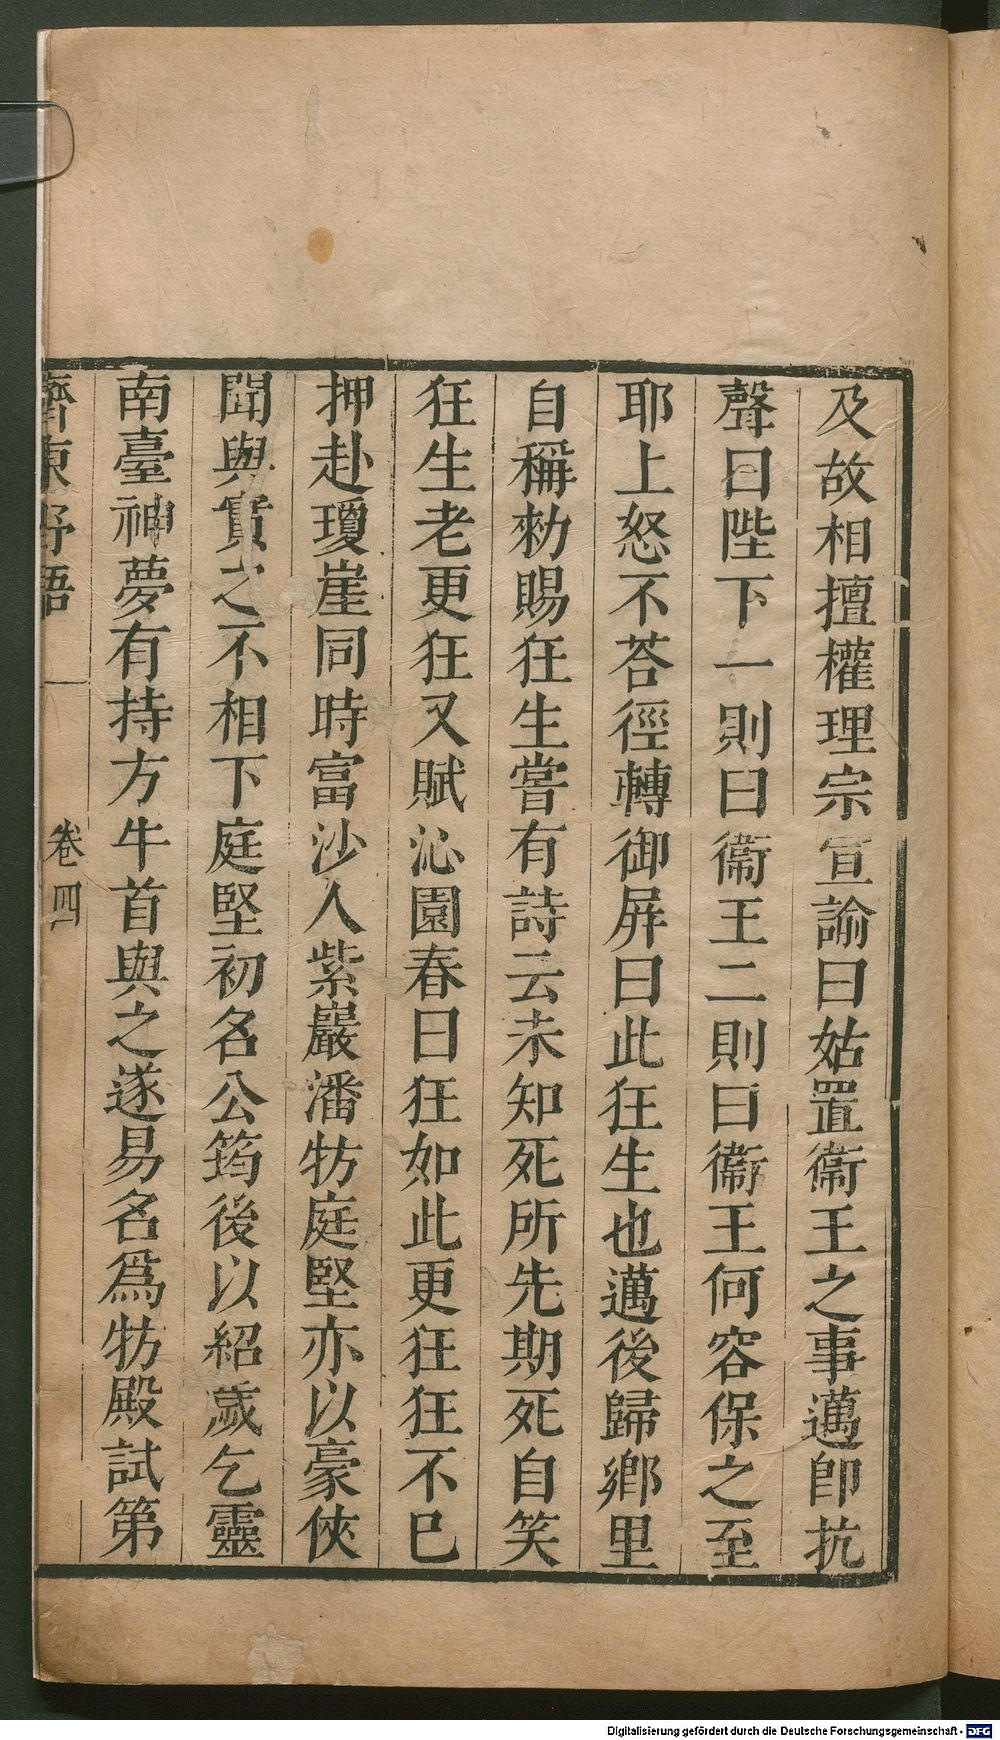 及故相擅權理宗宣諭曰姑置衞王之事邁卽抗
聲曰陛下一則曰衞王二則曰衞王何容保之至
耶上怒不荅徑轉御屏曰此狂生也邁後歸鄉里
自稱勑賜狂生嘗有詩云未知死所先期死自笑
狂生老更狂又賦沁園春曰狂如此更狂狂不已
押赴瓊崖同時富沙人紫巖潘牥庭堅亦以豪俠
聞與實之不相下庭堅初名公筠後以紹歲乞靈
南臺神夢有持方牛首與之遂易名爲牥殿試第
齊東野語 卷四
Digitalisierung gefördert durch die Deutsche Forschungsgemeinschaft - DFG